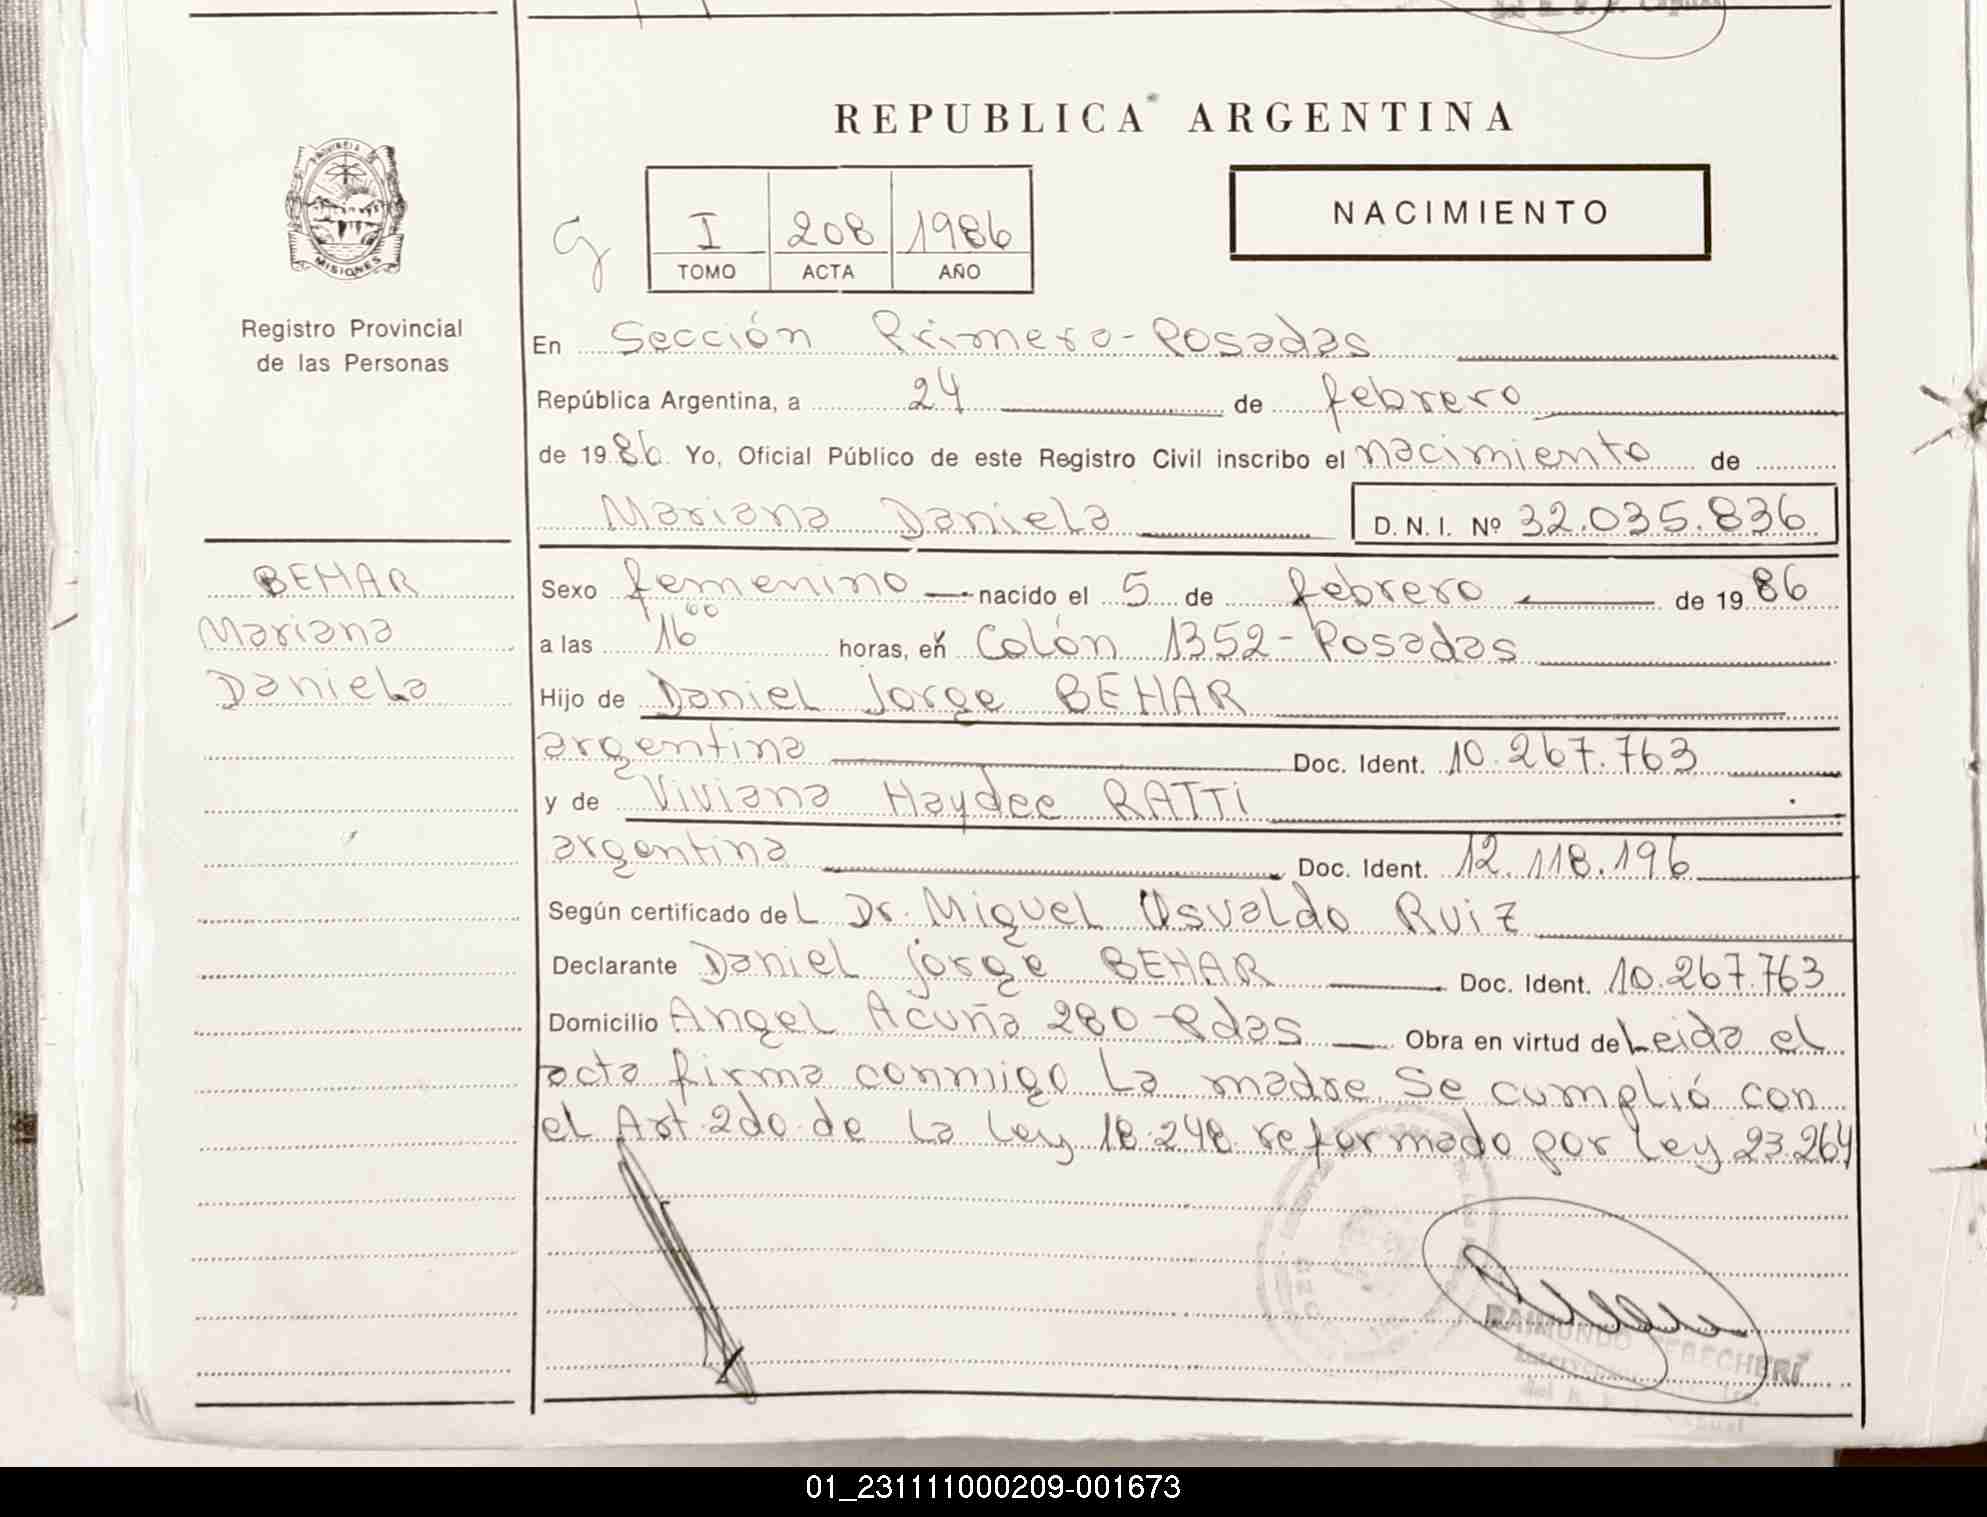 REPUBLICA ARGENTINA
PROVINCIA DE
MISIONES
Registro Provincial
de las Personas
I 208 1986
TOMO ACTA AÑO
NACIMIENTO
En Sección Primera-Posadas
República Argentina, a 24 de febrero
de 1986. Yo, Oficial Público de este Registro Civil inscribo el nacimiento de
Mariana Daniela D.N.I. Nº 32.035.836
BEHAR
Mariana
Daniela
Sexo femenino nacido el 5 de febrero de 1986
a las 16⁰⁰ horas, en Colón 1352-Posadas
Hijo de Daniel Jorge BEHAR
argentina Doc. Ident. 10.267.763
y de Viviana Haydee RATTI
argentina Doc. Ident. 12.118.196
Según certificado del Dr. Miguel Osvaldo Ruiz
Declarante Daniel Jorge BEHAR Doc. Ident. 10.267.763
Domicilio Angel Acuña 280-Pdas Obra en virtud de Leida el
acta firma conmigo la madre. Se cumplió con
el Art. 2do. de la Ley 18.248 reformado por Ley 23.264
RAIMUNDO
01_231111000209-001673